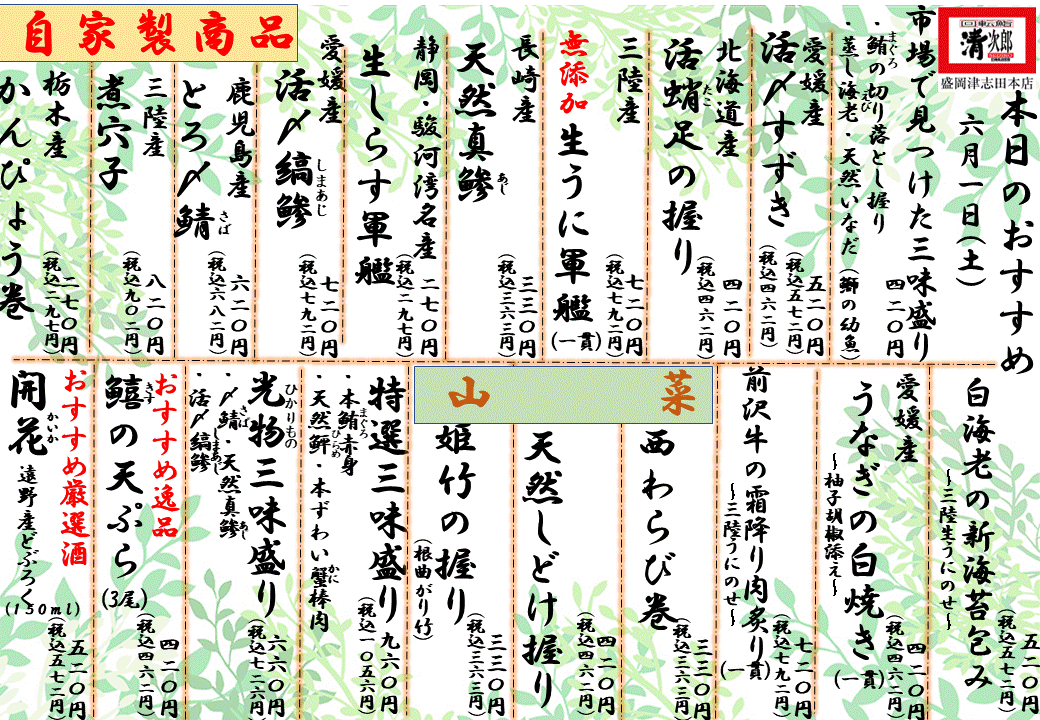 回転鮨
清次郎
盛岡津志田本店
本日のおすすめ
六月一日(土)
市場で見つけた三味盛り
・鮪の切り落とし握り
まぐろ
・蒸し海老・天然いなだ(鰤の幼魚)
えび
四二〇円
五二〇円
(税込五七二円)
(税込四六二円)
愛媛産
活〆すずき
北海道産
活蛸足の握り
たこ
四二〇円
(税込四六二円)
三陸産
無添加
生うに軍艦
(一貫)
七二〇円
(税込七九二円)
長崎産
天然真鯵
あじ
三三〇円
(税込三六三円)
静岡・駿河湾名産
生しらす軍艦
二七〇円
(税込二九七円)
愛媛産
活〆縞鯵
しまあじ
七二〇円
(税込七九二円)
鹿児島産
とろ〆鯖
さば
六二〇円
(税込六八二円)
三陸産
煮穴子
八二〇円
(税込九〇二円)
栃木産
かんぴょう巻
二七〇円
(税込二九七円)
自家製商品
白海老の新海苔包み
~三陸生うにのせ~
五二〇円
(税込五七二円)
愛媛産
うなぎの白焼き
(一貫)
~柚子胡椒添え~
四二〇円
(税込四六二円)
前沢牛の霜降り肉炙り
(一貫)
~三陸うにのせ~
七二〇円
(税込七九二円)
山菜
西わらび巻
三三〇円
(税込三六三円)
天然しどけ握り
四二〇円
(税込四六二円)
姫竹の握り
(根曲がり竹)
三三〇円
(税込三六三円)
特選三味盛り
・本鮪赤身
まぐろ
・天然鮃・本ずわい蟹棒肉
ひらめ
かに
九六〇円
(税込一〇五六円)
光物三味盛り
ひかりもの
・〆鯖・天然真鯵
さば
あじ
・活〆縞鯵
しまあじ
六六〇円
(税込七二六円)
おすすめ逸品
鱚の天ぷら
きす
(3尾)
四二〇円
(税込四六二円)
おすすめ厳選酒
開花
かいか
遠野産どぶろく
(150ml)
五二〇円
(税込五七二円)